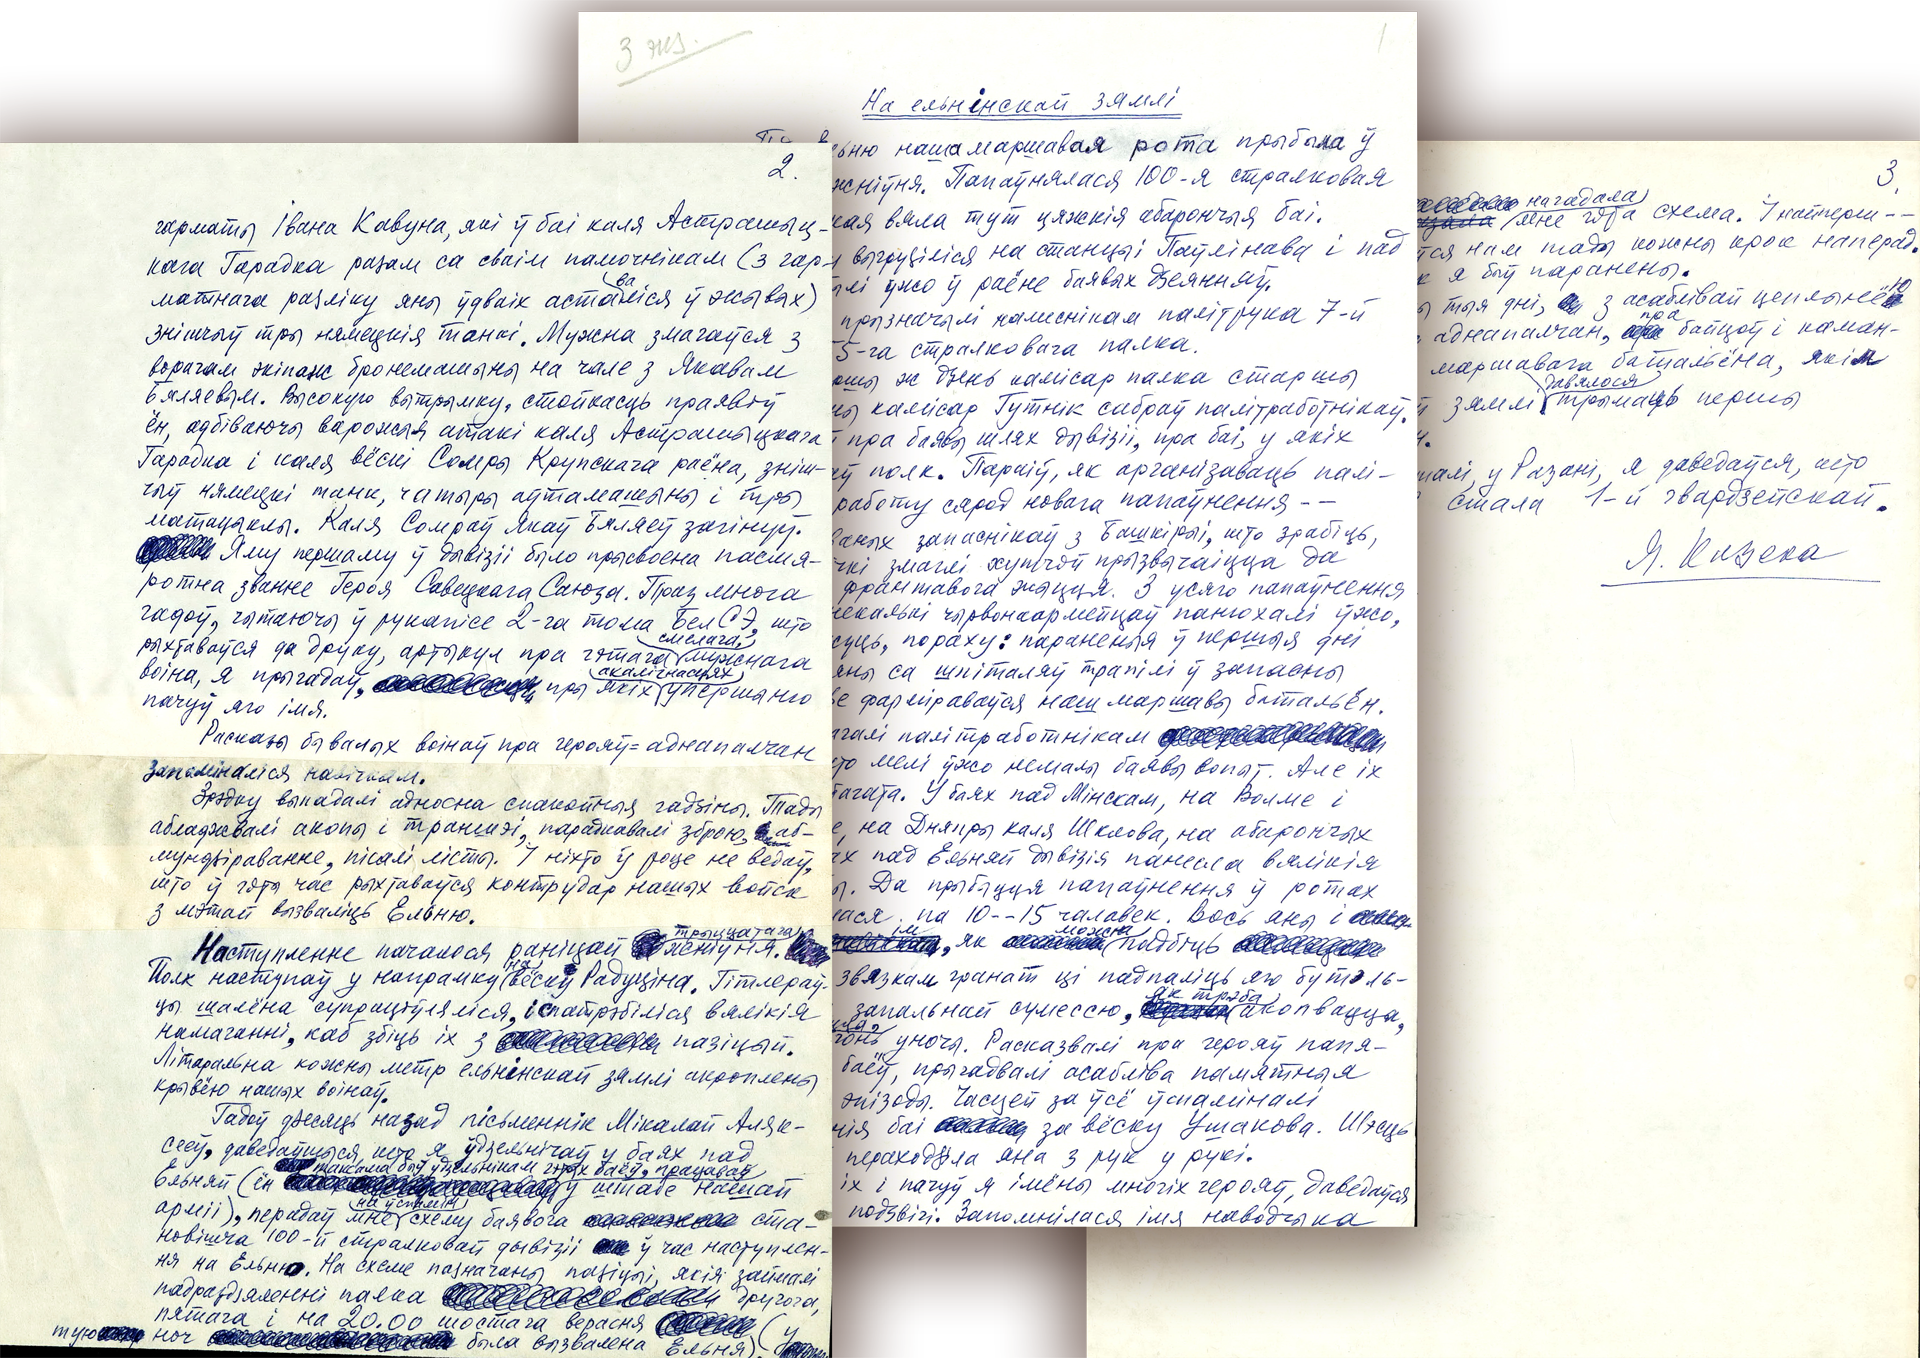 3 экз.
1
На ельнінскай зямлі
ьню наша маршавая рота прыбыла ў
жніўня. Папаўнялася 100-я стралковая
кая вяла тут цяжкія абарончыя баі.
выгрузіліся на станцыі Паўлінава і пад
лі ўжо ў раёне баявых дзеянняў.
прызначылі намеснікам палітрука 7-й
5-га стралковага палка.
ж дзень камісар палка старшы
ны камісар Гутнік сабраў палітработнікаў.
пра баявы шлях дывізіі, пра баі, у якіх
ўў полк. Параіў, як арганізаваць палі-
работу сярод новага папаўнення --
ваных запаснікаў з Башкірыі, што зрабіць,
зкі змаглі хутчэй прызвычаіцца да
франтавога жыцця. З усяго папаўнення
некалькі чырвонаармейцаў панюхалі ўжо,
суць, пораху: параненыя ў першыя дні
яны са шпіталяў трапілі ў запасны
фарміраваўся наш маршавы батальён.
агалі палітработнікам
то мелі ўжо немалы баявы вопыт. Але іх
гата. У баях пад Мінскам, на Волме і
е, на Дняпры каля Шклова, на абарончых
ах пад Ельняй дывізія панесла вялікія
ы. Да прыбыцця папаўнення ў ротах
лася па 10--15 чалавек. Вось яны і
як можна падбіць
звязкам гранат ці падпаліць яго бутэль-
запальнай сумессю, як трэба акопвацца,
гонь уночы. Расказвалі пра герояў папя-
баёў, прыгадвалі асабліва памятныя
эпізоды. Часцей за ўсё ўспаміналі
нія баі за вёску Ушакова. Шэсць
пераходзіла яна з рук у рукі.
іх і пачуў я імёны многіх герояў, даведаўся
подзвігі. Запомнілася імя наводчыка
2.
гарматы Івана Кавуна, які ў баі каля Астрашыц-
кага Гарадка разам са сваім памочнікам (з гар-
матнага разліку яны ўдваіх асталіся ў жывых)
знішчыў тры нямецкія танкі. Мужна змагаўся з
ворагам экіпаж бронемашыны на чале з Якавам
Бяляевым. Высокую вытрымку, стойкасць праявіў
ён, адбіваючы варожыя атакі каля Астрашыцкага
Гарадка і каля вёскі Сомры Крупскага раёна, зніш-
чыў нямецкі танк, чатыры аўтамашыны і тры
матацыклы. Каля Сомраў Якаў Бяляеў загінуў.
Яму першаму ў дывізіі было прысвоена пасмя-
ротна званне Героя Савецкага Саюза. Праз многа
гадоў, чытаючы ў рукапісе 2-га тома БелСЭ, што
рыхтаваўся да друку, артыкул пра гэтага смелага, мужнага
воіна, я прыгадаў, пры якіх акалічнасцях упершыню
пачуў яго імя.
Расказы бывалых воінаў пра герояў=аднапалчан
запаміналіся назіўжды.
Зрэдку выпадалі адносна спакойныя гадзіны. Тады
абладжвалі акопы і траншэі, парадкавалі зброю, аб-
мундзіраванне, пісалі лісты. І ніхто ў роце не ведаў,
што ў гэты час рыхтаваўся контрудар нашых войск
з мэтай вызваліць Ельню.
Наступленне пачалося раніцай трыццатага жніўня.
Полк наступаў у напрамку на вёску Радуціна. Гітлераў-
цы шалёна супраціўляліся, і спатрэбіліся вялікія
намаганні, каб збіць іх з пазіцый.
Літаральна кожны метр ельнінскай зямлі акроплены
крывёю нашых воінаў.
Гадоў дзесяць назад пісьменнік Мікалай Аляк-
сееў, даведаўшыся, што я ўдзельнічаў у баях пад
Ельняй (ён таксама быў удзельнікам гэтых баёў, працаваў у штабе нашай
арміі), перадаў мне на ўспамін схему баявога ста-
новішча 100-й стралковай дывізіі ў час наступлен-
ня на Ельню. На схеме пазначаны пазіцыі, якія займалі
падраздзяленні палка другога,
пятага і на 20.00 шостага верасня (у
тую ноч была вызвалена Ельня).
3.
нагадала
мне гэта схема. І найперш --
ўся нам тады кожны крок наперад.
к я быў паранены.
ы тыя дні, з асаблівай цеплынёю
аднапалчан, пра байцоў і каман-
маршавага батальёна, якім
зямлі давялося трымаць першы
талі, у Разані, я даведаўся, што
стала 1-й гвардзейскай.
Я. Казека